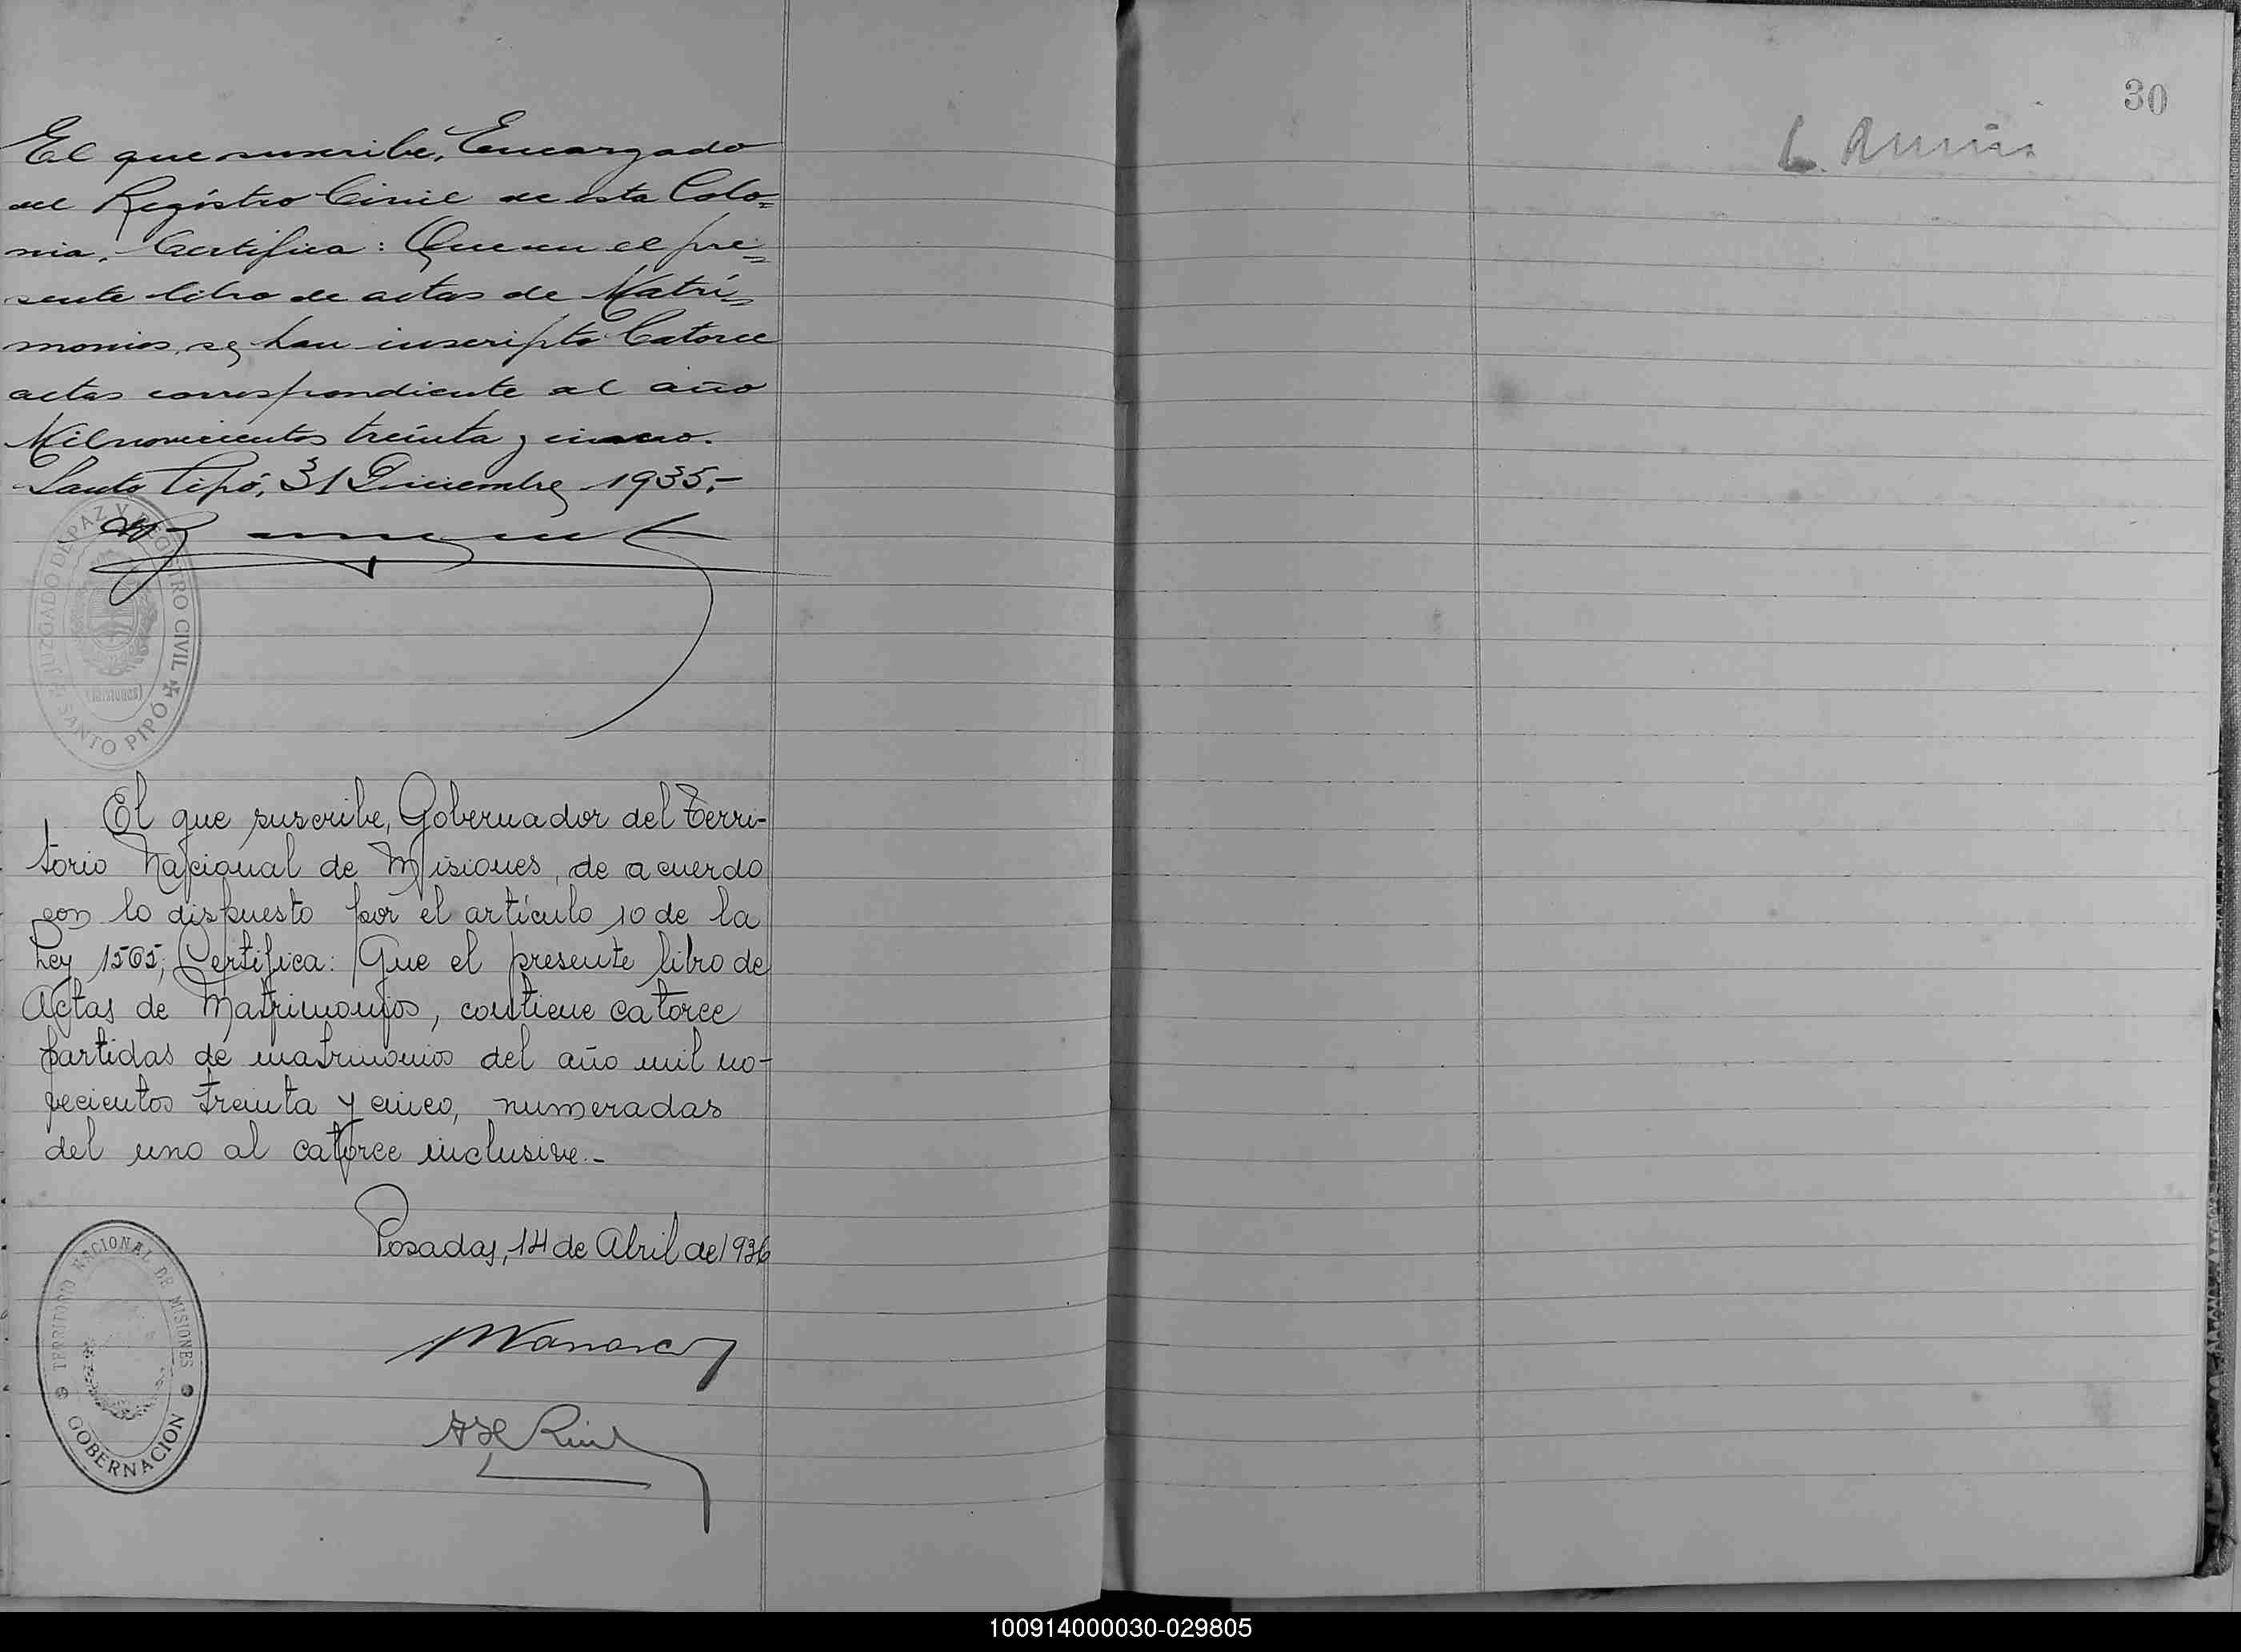 El que suscribe, Encargado
del Registro Civil de esta Colo=
nia, Certifica: Que en el pre=
sente libro de actas de Matri=
monios, se han inscripto Catorce
actas correspondiente al año
Mil novecientos treinta y cinco.
Santo Pipó, 31 Diciembre 1935.-
JUZGADO DE PAZ Y REGISTRO CIVIL
(Misiones)
SANTO PIPÓ
El que suscribe, Gobernador del Terri-
torio Nacional de Misiones, de acuerdo
con lo dispuesto por el artículo 10 de la
Ley 1565, Certifica: Que el presente libro de
Actas de Matrimonios, contiene catorce
partidas de matrimonios del año mil no-
vecientos treinta y cinco, numeradas
del uno al catorce inclusive.-
Posadas, 14 de Abril de 1936
TERRITORIO NACIONAL DE MISIONES
GOBERNACION
30
100914000030-029805